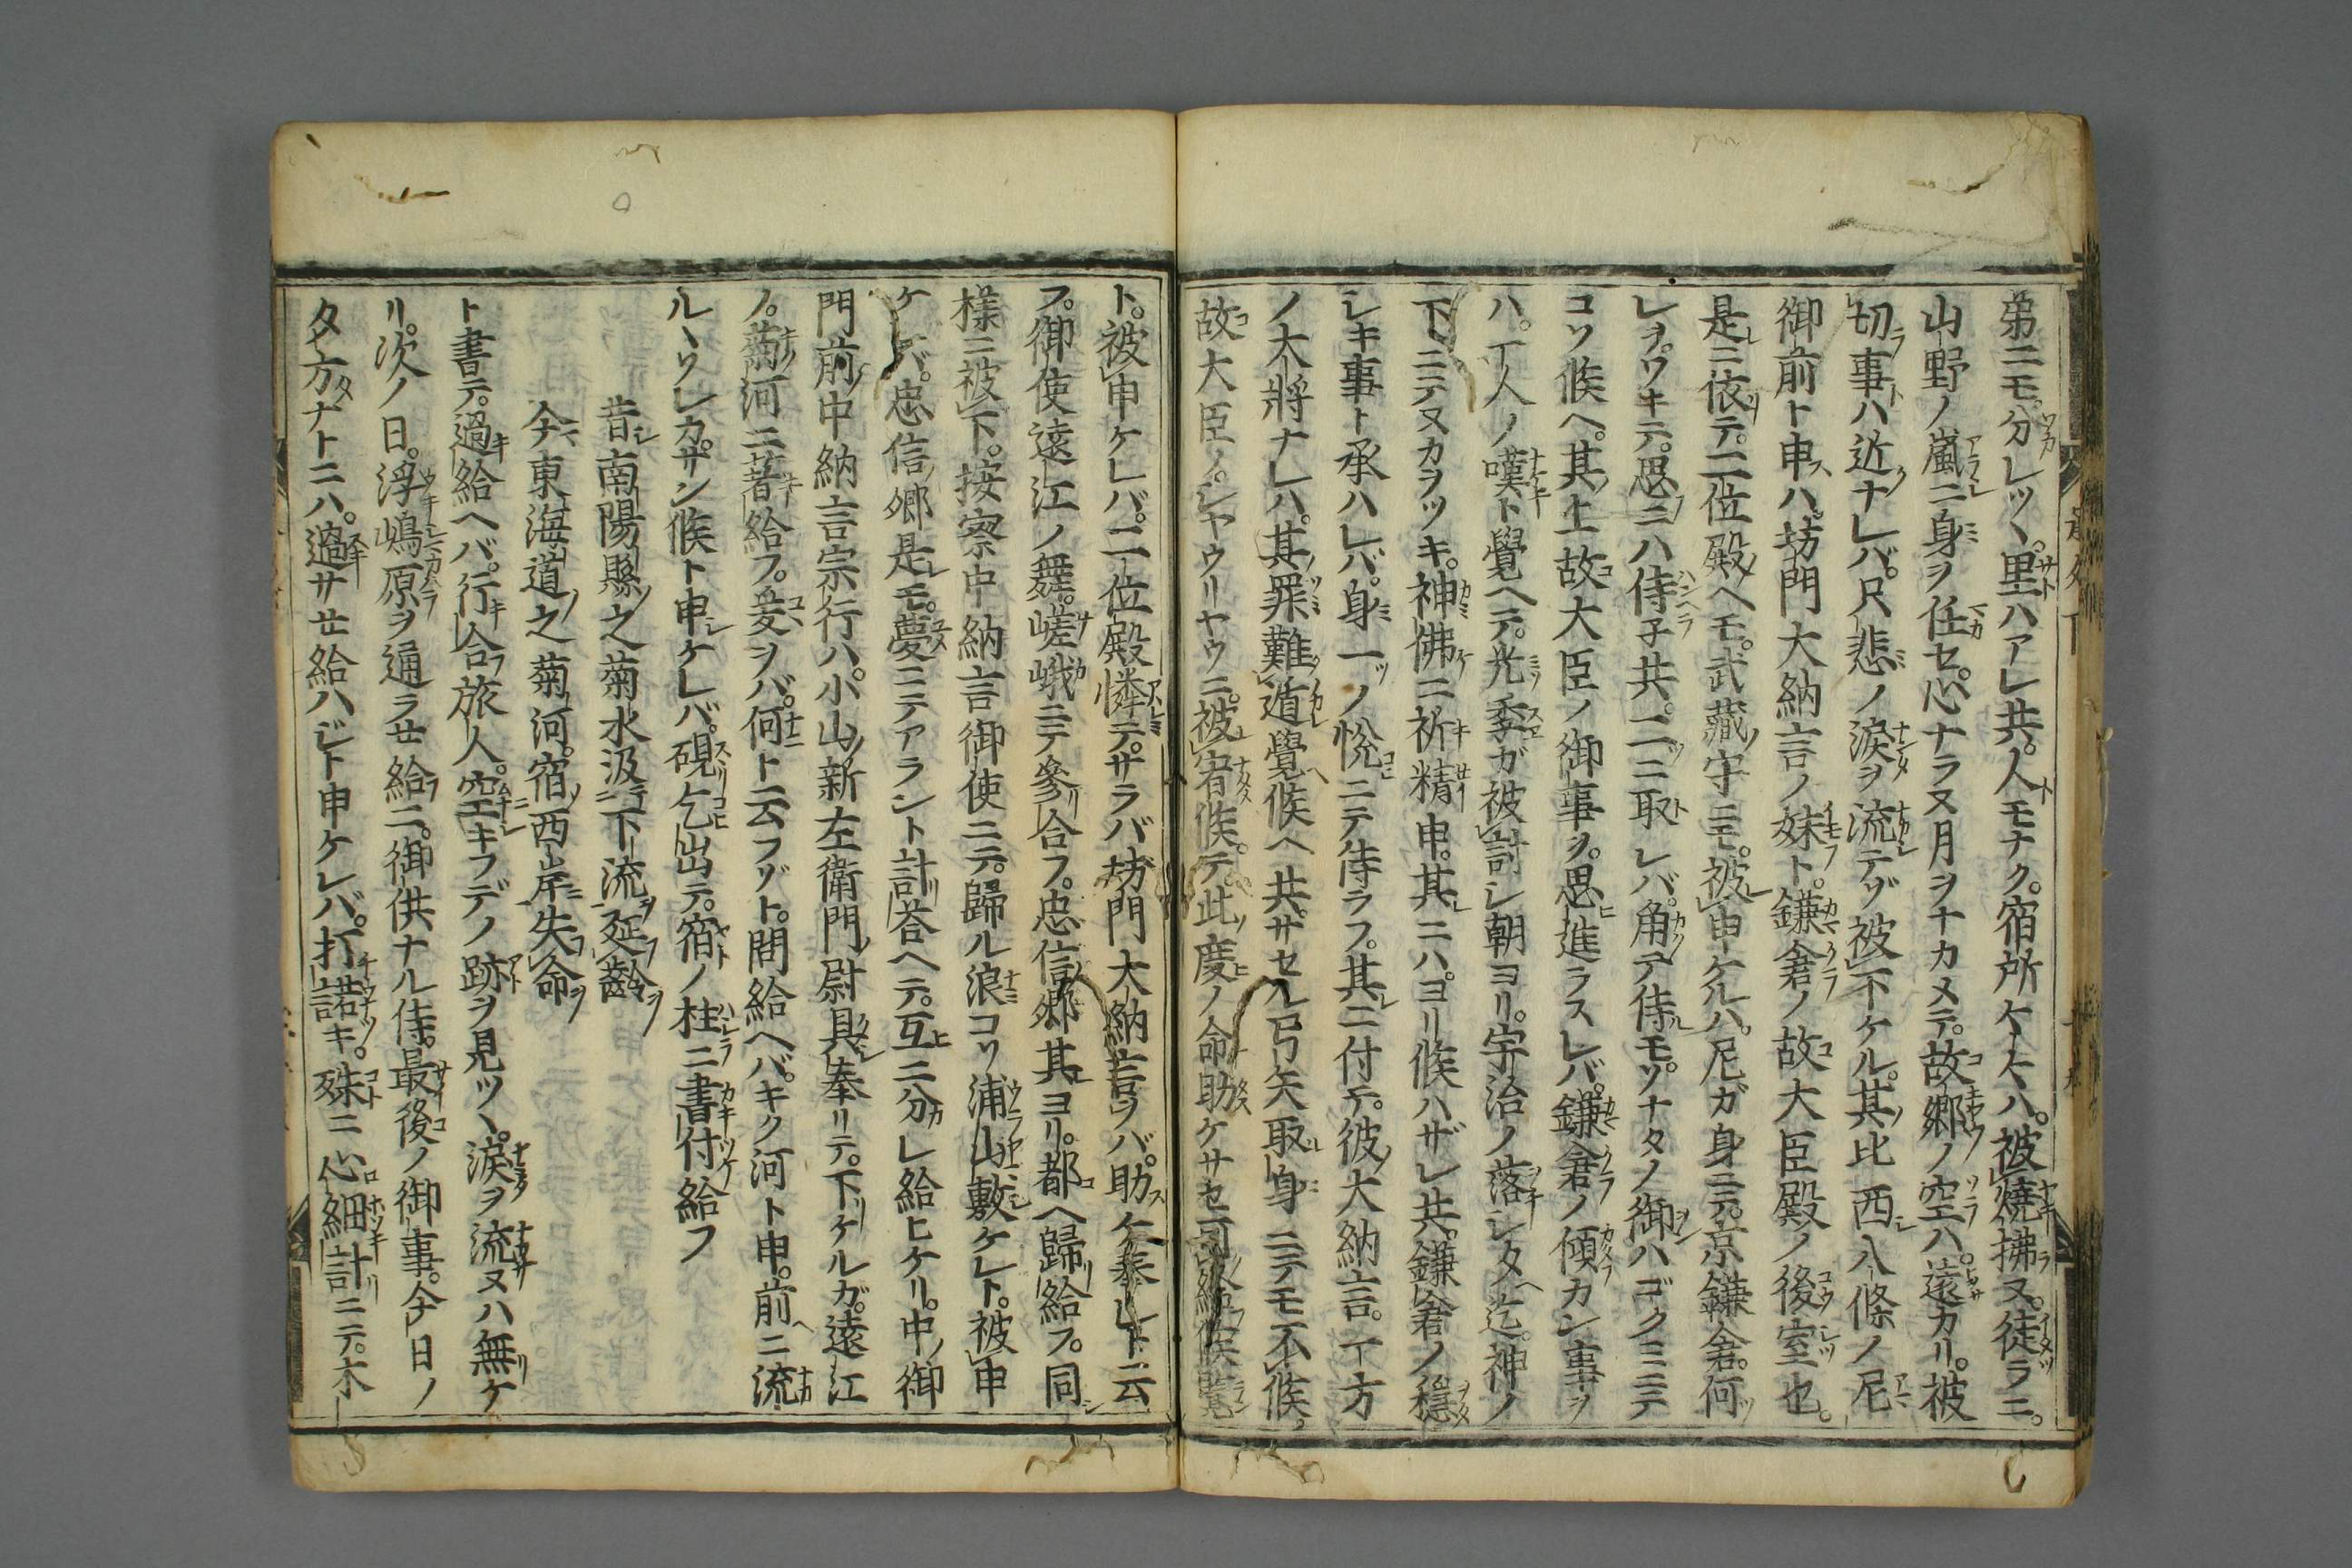 弟ニモ。分レツヽ。里ハアレ共。人モナク。宿所ケヒハ。被燒拂ヌ。徒ラニ。
山野ノ嵐ニ身ヲ任セ。心ナラヌ月ヲナカメテ。故郷ノ空ハ。遠カリ。被
切事ハ近ナレバ。只悲ノ淚ヲ流テゾ被下ケル。其比西八條ノ尼
御前ト申ハ。坊門大納言ノ妹ト。鎌倉ノ故大臣殿ノ後室也。
是ニ依テ。二位殿ヘモ。武藏守ニモ。被申ケルハ。尼ガ身ニテ。京鎌倉。何
レヲ。ワキテ。思ニハ侍子共。一ニ取レバ。角テ侍モ。ソナタノ御ハゴクミニテ
コソ候ヘ。其上故大臣ノ御事ヲ。思進ラスレバ。鎌倉ノ傾カン事ヲ
ハ。一人ノ嘆ト覺ヘテ。光季ガ被討シ朝ヨリ。宇治ノ落シタ迄。神ノ
下ニテヌカヲツキ。神佛ニ祈精申。其ニハ。ヨリ候ハザレ共。鎌倉ノ穩
シキ事ト承ハレバ。身一ツノ悅ニテ侍ラフ。其ニ付テ。彼大納言。一方
ノ大將ナレハ。其罪難遁覺候ヘ共。サセル弓矢取身ニテモ不候。
故大臣ノ。シヤウリヤウニ。被宥候テ。此度ノ命助ケサセ
ト。被申ケレバ。二位殿憐テ。サラバ坊門大納言ヲバ。助ケ奉レト云
フ。御使遠江ノ舞。嵯峨ニテ參合フ。忠信郷其ヨリ。都ヘ歸給フ。同
樣ニ被下。按察中納言御使ニテ。歸ル浪コソ浦山敷ケレト。被申
ケレバ。忠信郷是モ。夢ニテアラント計答ヘテ。互ニ分レ給ヒケリ。中御
門前中納言宗行ハ。小山新左衛門尉具奉リテ。下ケルガ。遠江
ノ。菊河ニ著給フ。爰ヲバ。何ト云フゾト。問給ヘバ。キク河ト申。前ニ流
ルヽソレカ。サン候ト申ケレバ。硯ヲ乞出テ。宿ノ柱ニ書付給フ
昔南陽縣之菊水汲下流延齡
今東海道之菊河。宿西岸失命
ト書テ。過給ヘバ。行合旅人。空キフデノ跡ヲ見ツヽ。淚ヲ流ヌハ無ケ
リ。次ノ日。浮嶋原ヲ通ラせ給ニ。御供ナル侍。最後ノ御事。今日ノ
タ方ナトニハ。過サせ給ハジト申ケレバ。打諾キ。殊ニ心細計ニテ。木